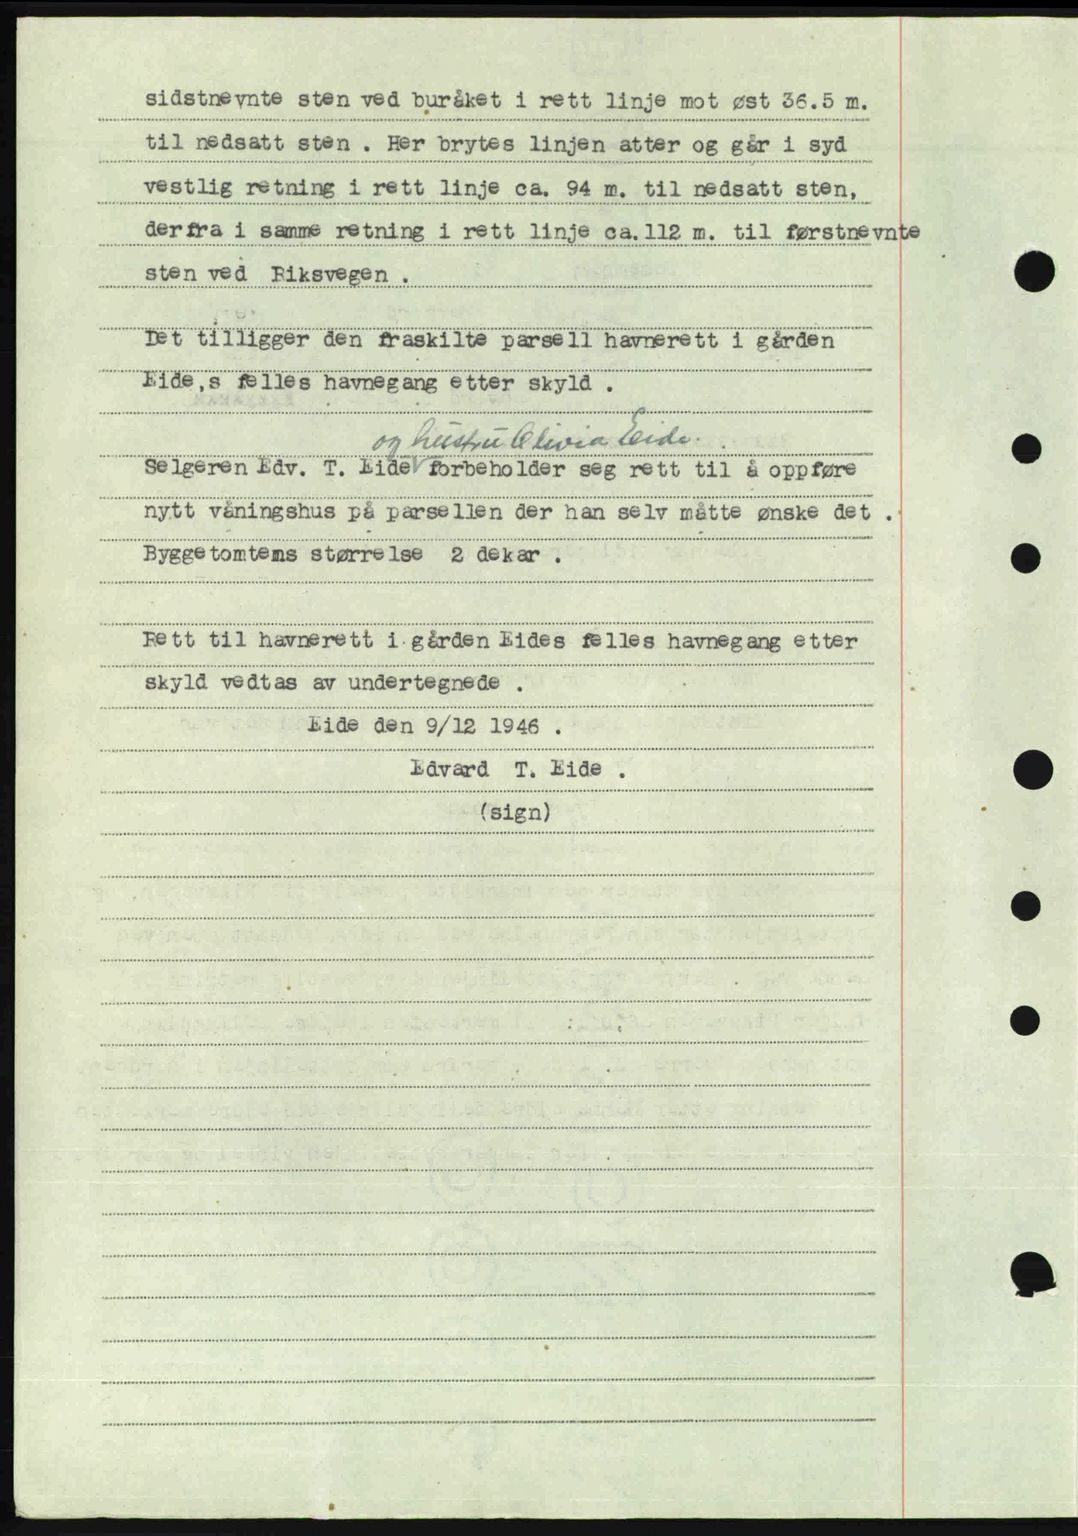 sidstnevnte sten ved buråket i rett linje mot øst 36.5 m.
til nedsatt sten . Her brytes linjen atter og går i syd
vestlig retning i rett linje ca. 94 m. til nedsatt sten,
derfra i samme retning i rett linje ca.112 m. til førstnevnte
sten ved Riksvegen .
Det tilligger den fraskilte parsell havnerett i gården
Eide,s felles havnegang etter skyld .
og hustru Olivia Eide.
Selgeren Edv. T. Eide forbeholder seg rett til å oppføre
nytt våningshus på parsellen der han selv måtte ønske det .
Byggetomtens størrelse 2 dekar .
Rett til havnerett i gården Eides felles havnegang etter
skyld vedtas av undertegnede .
Eide den 9/12 1946 .
Edvard T. Eide .
(sign)